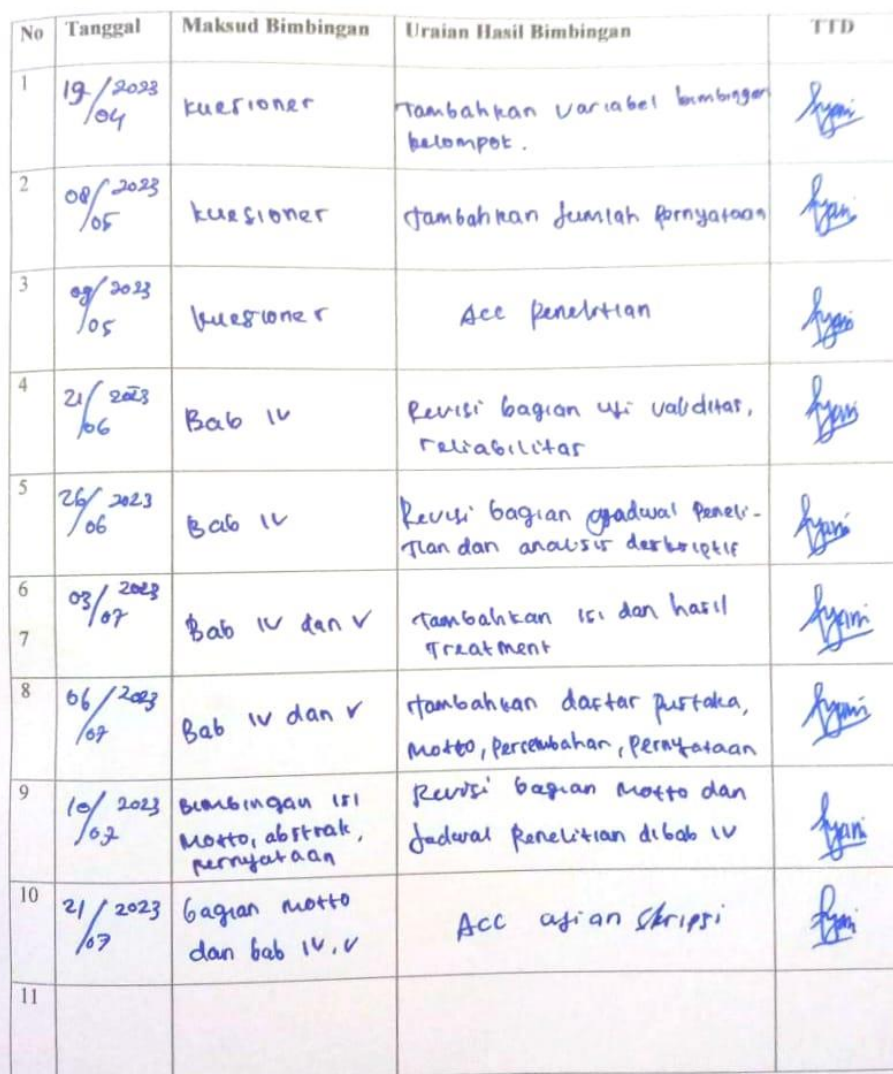 No Tanggal Maksud Bimbingan Uraian Hasil Bimbingan TTD
1 19/04 2023 kuesioner Tambahkan variabel bimbingan
kelompok.
2 08/05 2023 kuesioner Tambahkan Jumlah pernyataan
3 09/05 2023 kuesioner Acc penelitian
4 21/06 2023 Bab IV Revisi bagian uji validitas,
reliabilitas
5 26/06 2023 Bab IV Revisi bagian jadwal peneli-
tian dan analisis deskriptif
6 03/07 2023 Bab IV dan V Tambahkan isi dan hasil
7 Treatment
8 06/07 2023 Bab IV dan V Tambahkan daftar pustaka,
Motto, persembahan, pernyataan
9 10/07 2023 Bimbingan isi Revisi bagian Motto dan
Motto, abstrak, Jadwal Penelitian dibab IV
pernyataan
10 21/07 2023 bagian motto Acc ujian Skripsi
dan bab IV, V
11